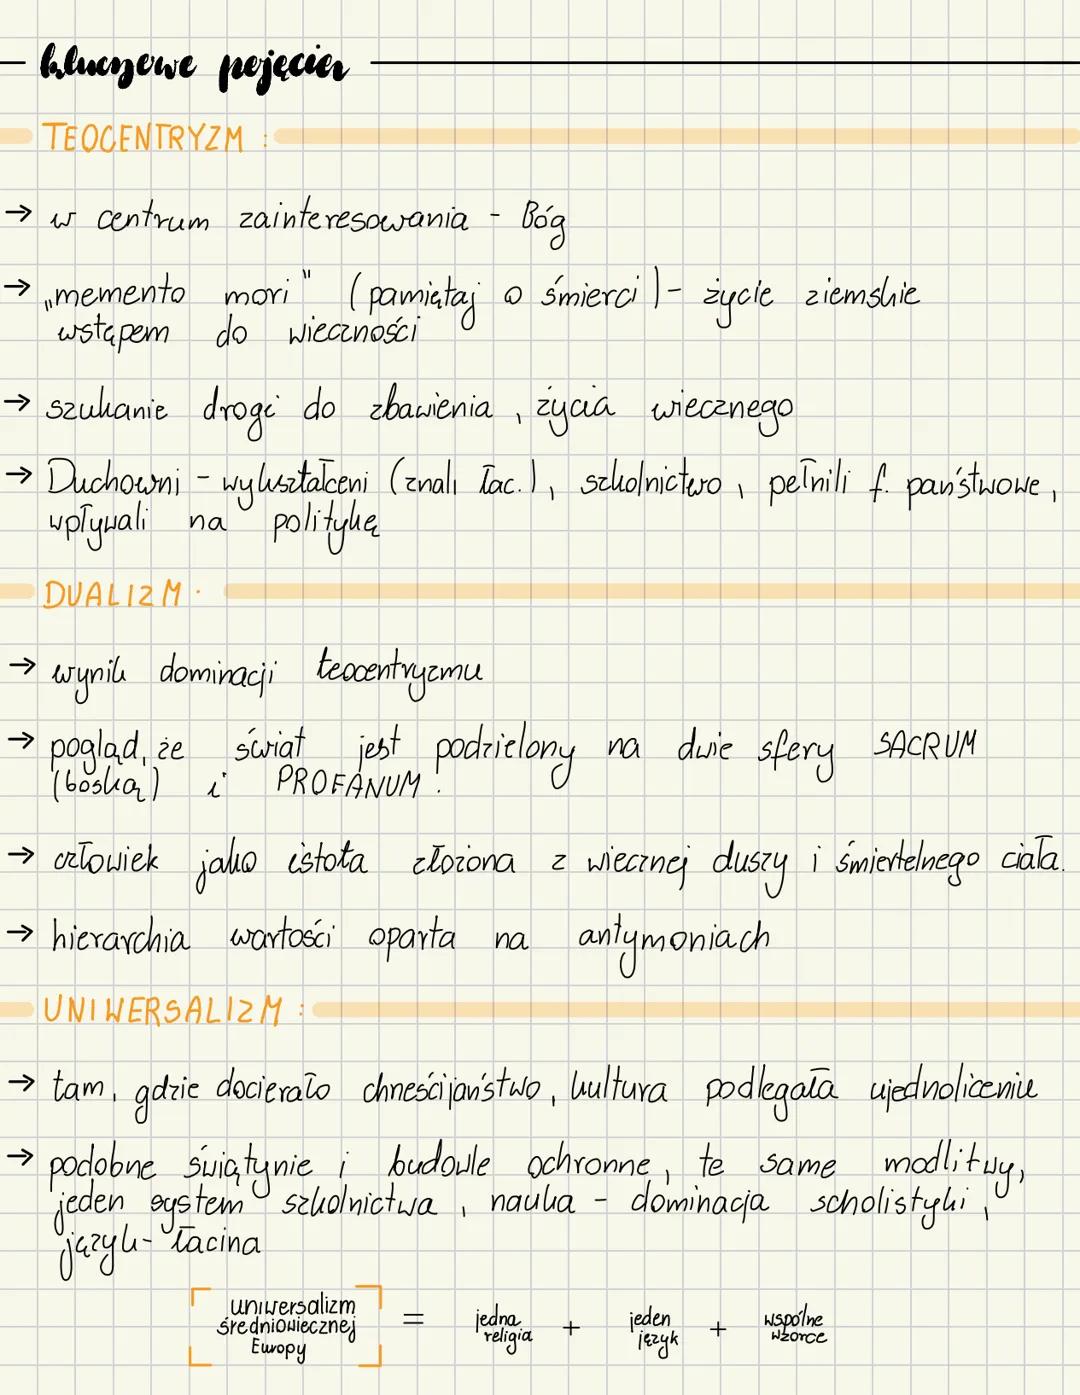 kluczowe pojęcia
TEOCENTRYZM :
→ w centrum zainteresowania - Bóg
→ „memento mori" (pamiętaj o śmierci) - życie ziemskie
wstępem do wieczności
→ szukanie drogi do zbawienia, życia wiecznego
→ Duchowni - wykształceni (znali łac.), szkolnictwo, pełnili f. państwowe,
wpływali na politykę
DUALIZM.
→ wynik dominacji teocentryzmu
→ pogląd, że świat jest podzielony na dwie sfery SACRUM
(boską) i PROFANUM.
→ człowiek jako istota złożona z wiecznej duszy i śmiertelnego ciała.
→ hierarchia wartości oparta na antymoniach
UNIWERSALIZM :
→ tam, gdzie docierało chrześcijaństwo, kultura podlegała ujednoliceniu
→ podobne świątynie i budowle ochronne, te same modlitwy,
jeden system szkolnictwa, nauka - dominacja scholistyki,
język - łacina
uniwersalizm
średniowiecznej
Europy
= jedna religia + jeden język + wspólne wzorce